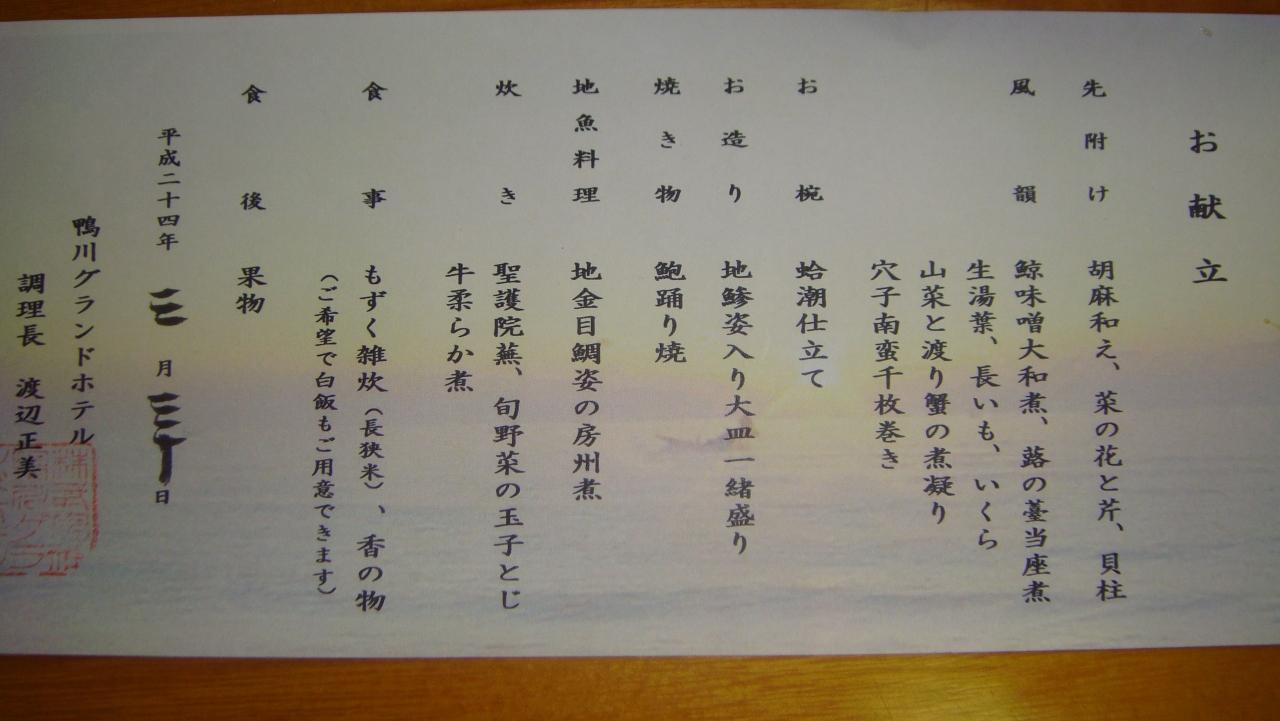 お献立
先附け 胡麻和え、菜の花と芹、貝柱
風韻 鯨味噌大和煮、蕗の薹当座煮
生湯葉、長いも、いくら
山菜と渡り蟹の煮凝り
穴子南蛮千枚巻き
お椀 蛤潮仕立て
お造り 地鯵姿入り大皿一緒盛り
焼き物 鮑踊り焼
地魚料理 地金目鯛姿の房州煮
炊き 聖護院蕪、旬野菜の玉子とじ
牛柔らか煮
食事 もずく雑炊(長狭米)、香の物
(ご希望で白飯もご用意できます)
食後 果物
平成二十四年 三月 三十日
鴨川グランドホテル
調理長 渡辺正美